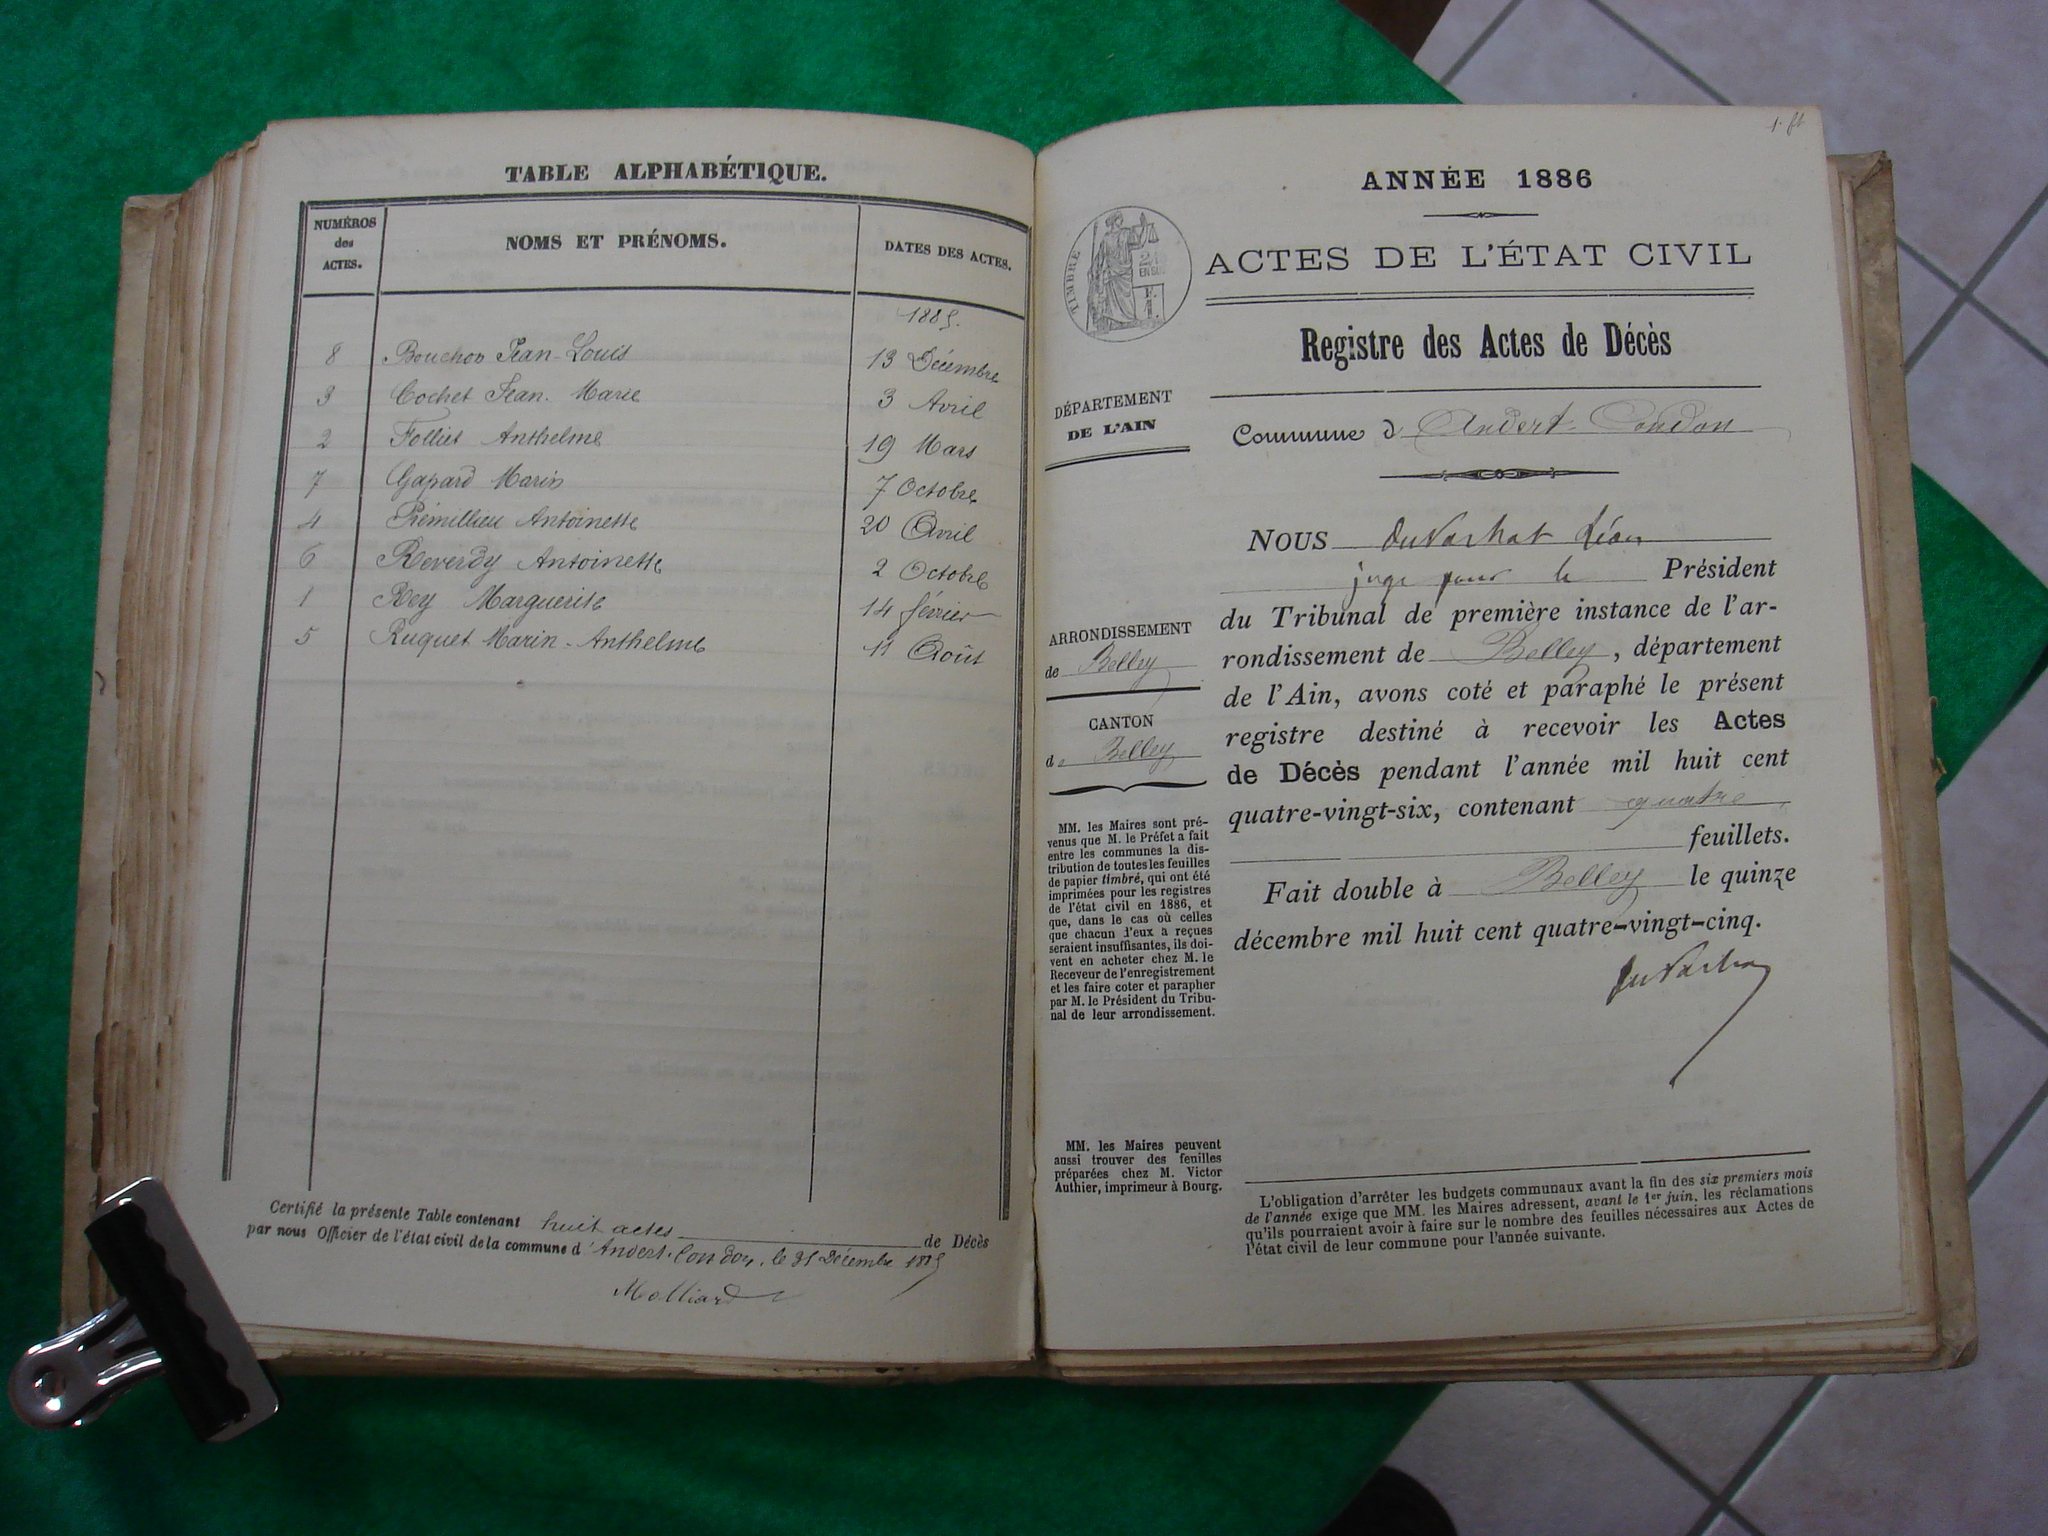 TABLE ALPHABÉTIQUE.
NUMÉROS des ACTES.
NOMS ET PRÉNOMS.
DATES DES ACTES.
1885.
8 Bouchon Jean-Louis 13 Décembre
3 Cochet Jean-Marie 3 Avril
2 Folliet Anthelme 19 Mars
7 Gapard Marin 7 Octobre
4 Prémillieu Antoinette 20 Avril
6 Reverdy Antoinette 2 Octobre
1 Rey Marguerite 14 février
5 Ruquet Marin-Anthelme 11 Août
Certifié la présente Table contenant huit actes de Décès
par nous Officier de l'état civil de la commune d'Andert-Condon, le 31 Décembre 1885
Molliard
1. ft
ANNÉE 1886
ACTES DE L'ÉTAT CIVIL
TIMBRE
Registre des Actes de Décès
DÉPARTEMENT
DE L'AIN
Commune d'Andert-Condon
NOUS Léon
juge pour le Président
du Tribunal de première instance de l'ar-
rondissement de Belley, département
de l'Ain, avons coté et paraphé le présent
registre destiné à recevoir les Actes
de Décès pendant l'année mil huit cent
quatre-vingt-six, contenant quatre
feuillets.
Fait double à Belley le quinze
décembre mil huit cent quatre-vingt-cinq.
ARRONDISSEMENT
de Belley
CANTON
de Belley
MM. les Maires sont pré-
venus que M. le Préfet a fait
entre les communes la dis-
tribution de toutes les feuilles
de papier timbré, qui ont été
imprimées pour les registres
de l'état civil en 1886, et
que, dans le cas où celles
que chacun d'eux a reçues
seraient insuffisantes, ils doi-
vent en acheter chez M. le
Receveur de l'enregistrement
et les faire coter et parapher
par M. le Président du Tribu-
nal de leur arrondissement.
MM. les Maires peuvent
aussi trouver des feuilles
préparées chez M. Victor
Authier, imprimeur à Bourg.
L'obligation d'arrêter les budgets communaux avant la fin des six premiers mois
de l'année exige que MM. les Maires adressent, avant le 1er juin, les réclamations
qu'ils pourraient avoir à faire sur le nombre des feuilles nécessaires aux Actes de
l'état civil de leur commune pour l'année suivante.